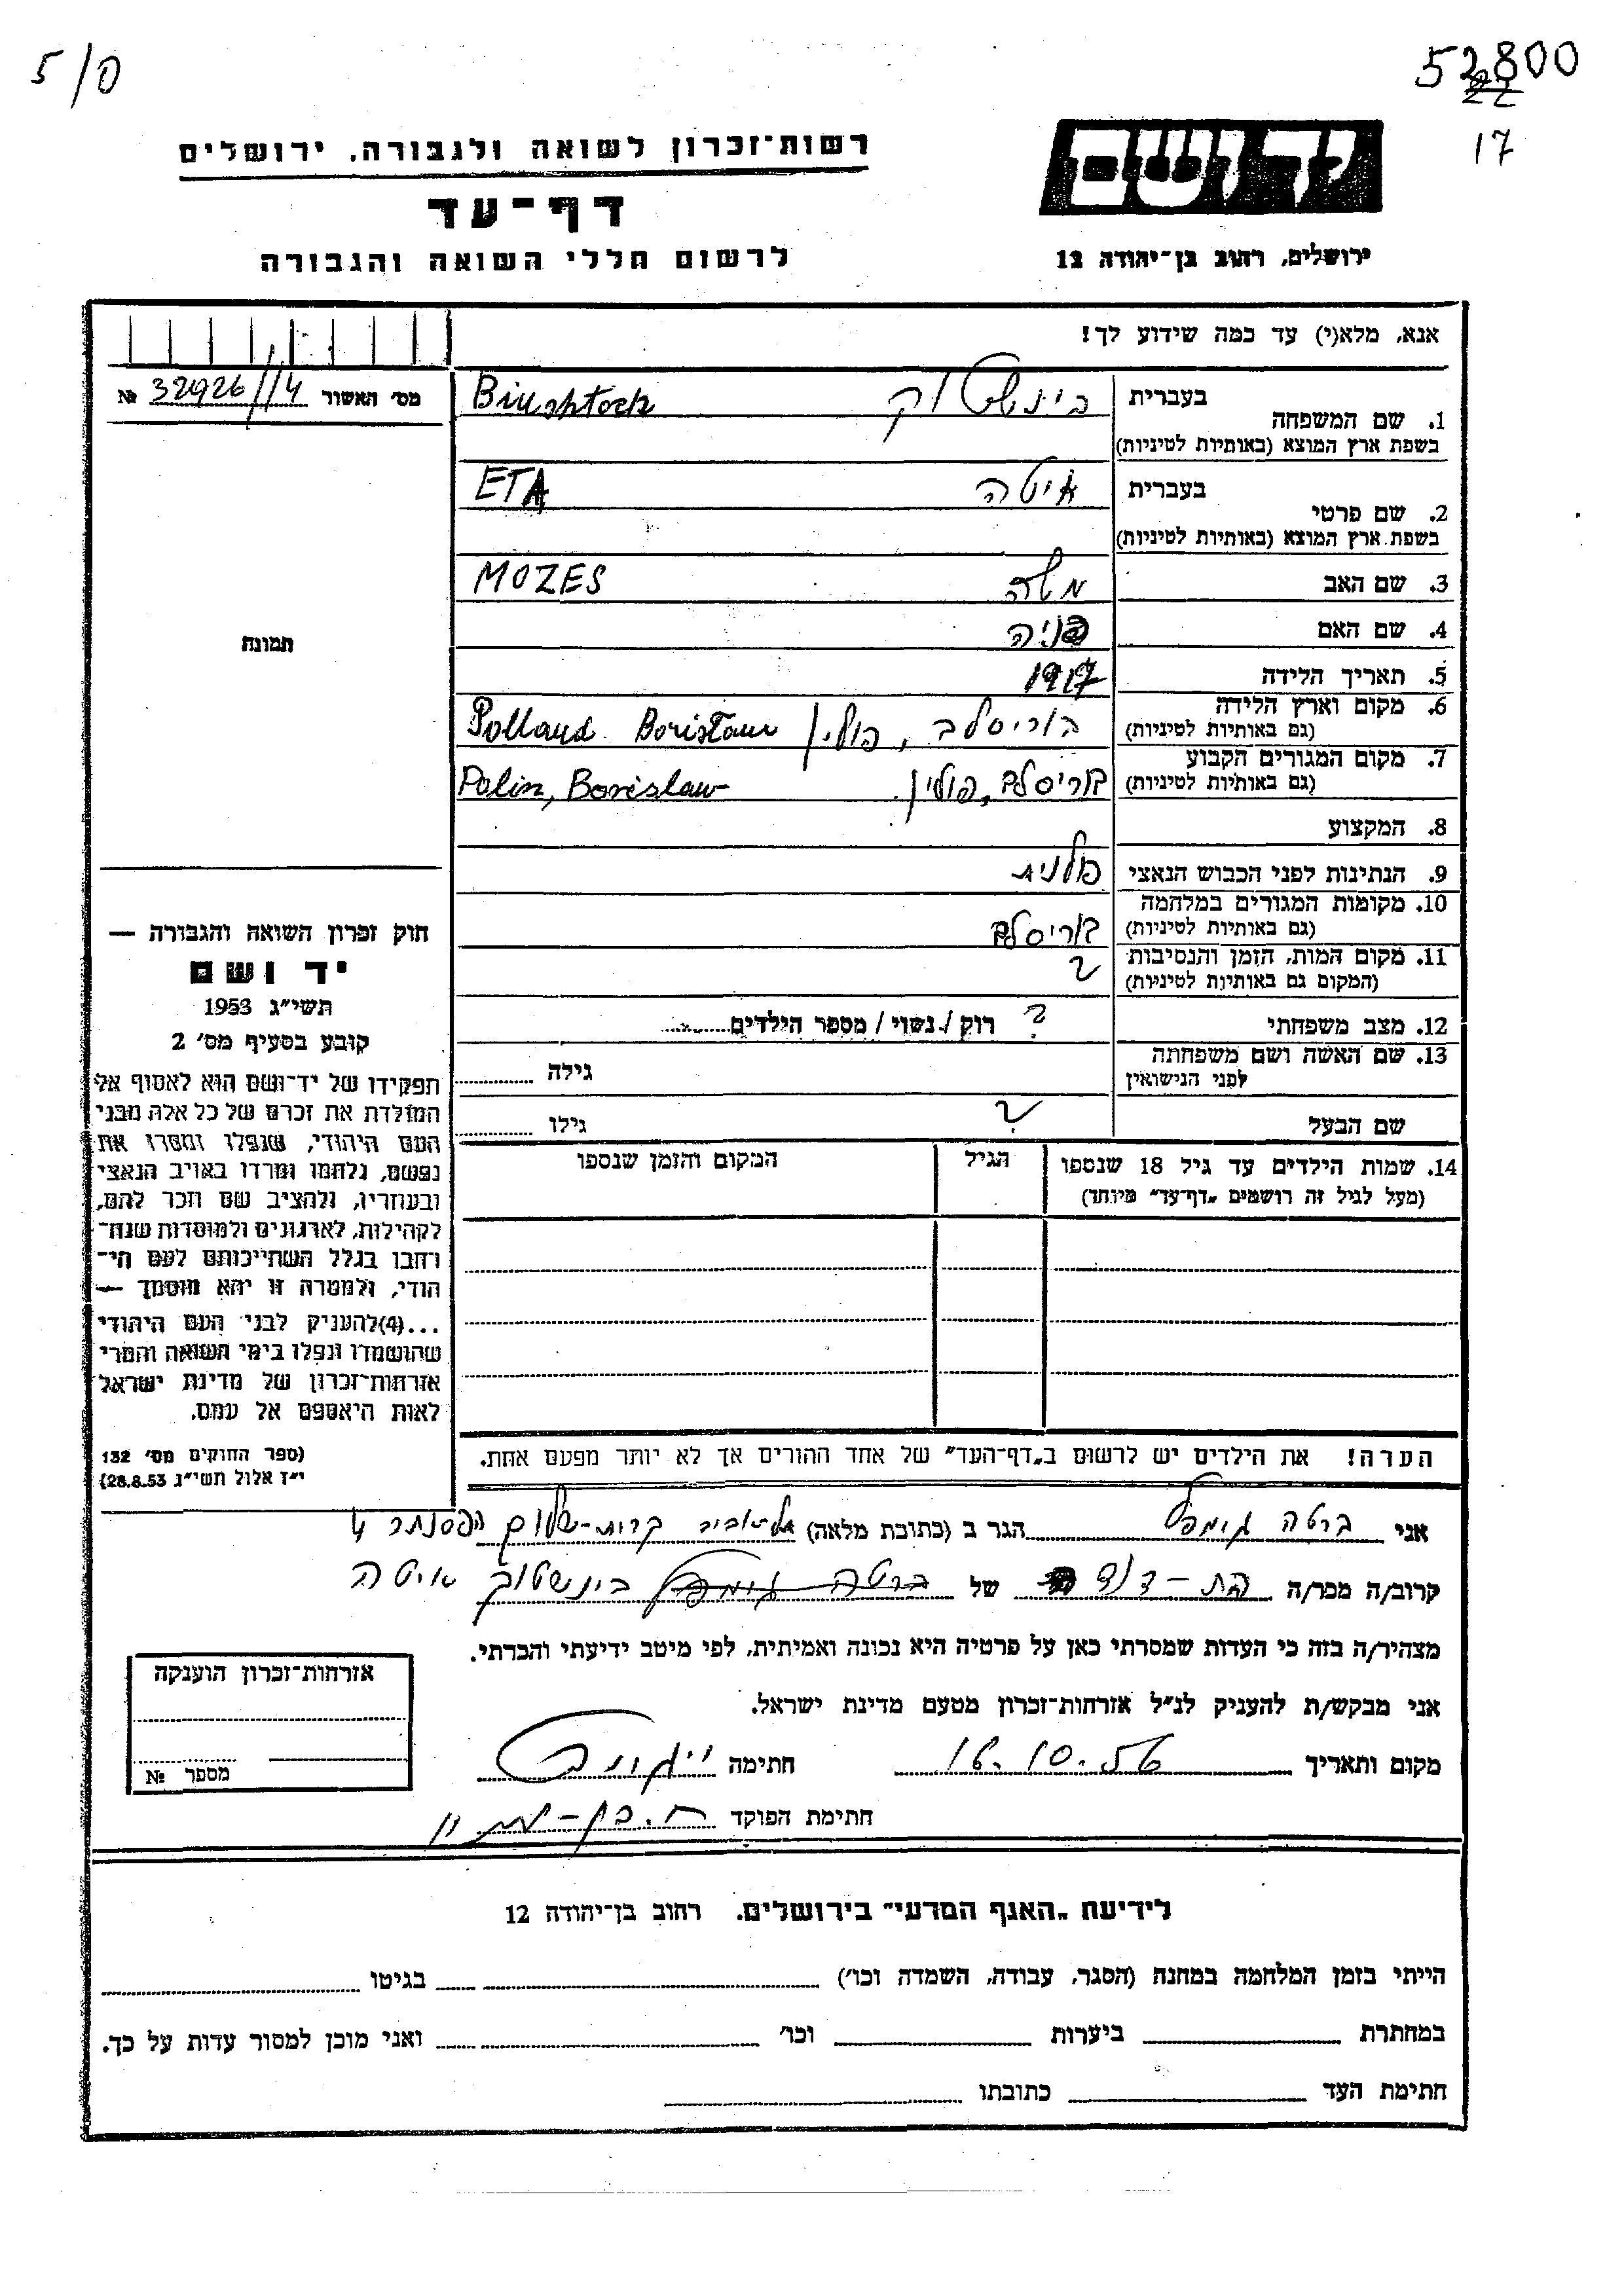 5/0
52800
17
רשות־זכרון לשואה ולגבורה, ירושלים
דף־עד
לרשום חללי השואה והגבורה
יד ושם
ירושלים, רחוב בן־יהודה 12
אנא, מלא(י) עד כמה שידוע לך!
מס׳ האשור 32926/14 №
1. שם המשפחה
בעברית
בשפת ארץ המוצא (באותיות לטיניות)
בינשטוק Binshtock
2. שם פרטי
בעברית
בשפת ארץ המוצא (באותיות לטיניות)
איטה ETA
3. שם האב משה MOZES
4. שם האם
5. תאריך הלידה 1917
6. מקום וארץ הלידה
(גם באותיות לטיניות)
בוריסלב, פולין Polland Borislaw
7. מקום המגורים הקבוע
(גם באותיות לטיניות)
בוריסלב, פולין Polin, Borislaw
8. המקצוע
9. הנתינות לפני הכבוש הנאצי פולנית
10. מקומות המגורים במלחמה
(גם באותיות לטיניות)
בוריסלב
11. מקום המות, הזמן והנסיבות
(המקום גם באותיות לטיניות)
?
12. מצב משפחתי ? רוק / נשוי / מספר הילדים
13. שם האשה ושם משפחתה
לפני הנישואין
גילה
שם הבעל ? גילו
14. שמות הילדים עד גיל 18 שנספו
(מעל לגיל זה רושמים „דף־עד״ מיוחד)
הגיל
המקום והזמן שנספו
הערה! את הילדים יש לרשום ב„דף־העד״ של אחד ההורים אך לא יותר מפעם אחת.
תמונה
חוק זכרון השואה והגבורה —
יד ושם
תשי״ג 1953
קובע בסעיף מס׳ 2
תפקידו של יד־ושם הוא לאסוף אל
המולדת את זכרם של כל אלה מבני
העם היהודי, שנפלו ומסרו את
נפשם, נלחמו ומרדו באויב הנאצי
ובעוזריו, ולהציב שם וזכר להם,
לקהילות, לארגונים ולמוסדות שנח־
רבו בגלל השתייכותם לעם הי־
הודי, ולמטרה זו יהא מוסמך —
...(4)להעניק לבני העם היהודי
שהושמדו ונפלו בימי השואה והמרי
אזרחות־זכרון של מדינת ישראל
לאות היאספם אל עמם.
(ספר החוקים מס׳ 132
י״ז אלול תשי״ג 28.8.53)
אני ברטה גימפל הגר ב (כתובת מלאה) תל-אביב קרית-שלום הפסנתר 4
קרוב/ה מכר/ה בת-דוד של ברטה גימפל בינשטוק איטה
מצהיר/ה בזה כי העדות שמסרתי כאן על פרטיה היא נכונה ואמיתית, לפי מיטב ידיעתי והכרתי.
אני מבקש/ת להעניק לנ״ל אזרחות־זכרון מטעם מדינת ישראל.
מקום ותאריך 16.10.56 חתימה
חתימת הפוקד
אזרחות־זכרון הוענקה
מספר №
לידיעת „האגף המדעי״ בירושלים, רחוב בן־יהודה 12
הייתי בזמן המלחמה במחנה (הסגר, עבודה, השמדה וכו׳) בגיטו
במחתרת ביערות וכו׳ ואני מוכן למסור עדות על כך.
חתימת העד כתובתו